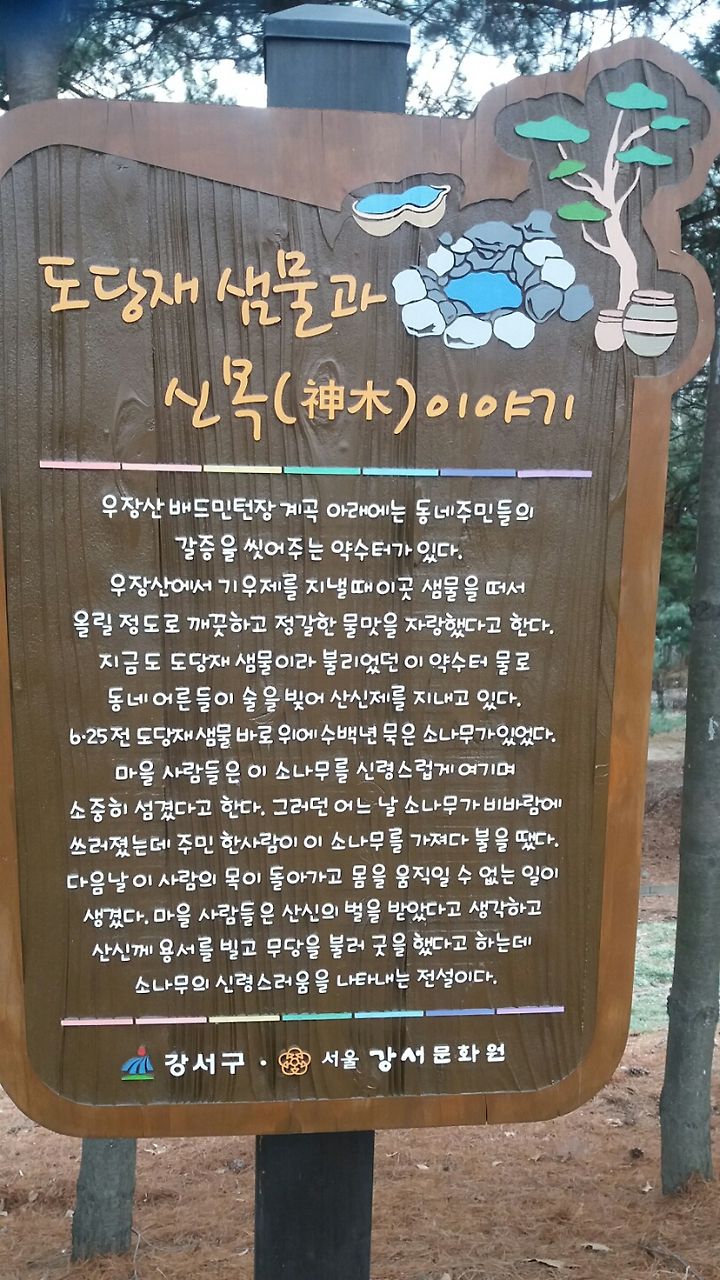 도당재 샘물과
신목(神木)이야기
우장산 배드민턴장 계곡 아래에는 동네주민들의
갈증을 씻어주는 약수터가 있다.
우장산에서 기우제를 지낼때 이곳 샘물을 떠서
올릴 정도로 깨끗하고 정갈한 물맛을 자랑했다고 한다.
지금도 도당재 샘물이라 불리었던 이 약수터 물로
동네 어른들이 술을 빚어 산신제를 지내고 있다.
6·25전 도당재샘물 바로위에 수백년 묵은 소나무가 있었다.
마을 사람들은 이 소나무를 신령스럽게 여기며
소중히 섬겼다고 한다. 그러던 어느 날 소나무가 비바람에
쓰러졌는데 주민 한사람이 이 소나무를 가져다 불을 땠다.
다음날 이 사람의 목이 돌아가고 몸을 움직일 수 없는 일이
생겼다. 마을 사람들은 산신의 벌을 받았다고 생각하고
산신께 용서를 빌고 무당을 불러 굿을 했다고 하는데
소나무의 신령스러움을 나타내는 전설이다.
강서구 · 서울 강서문화원